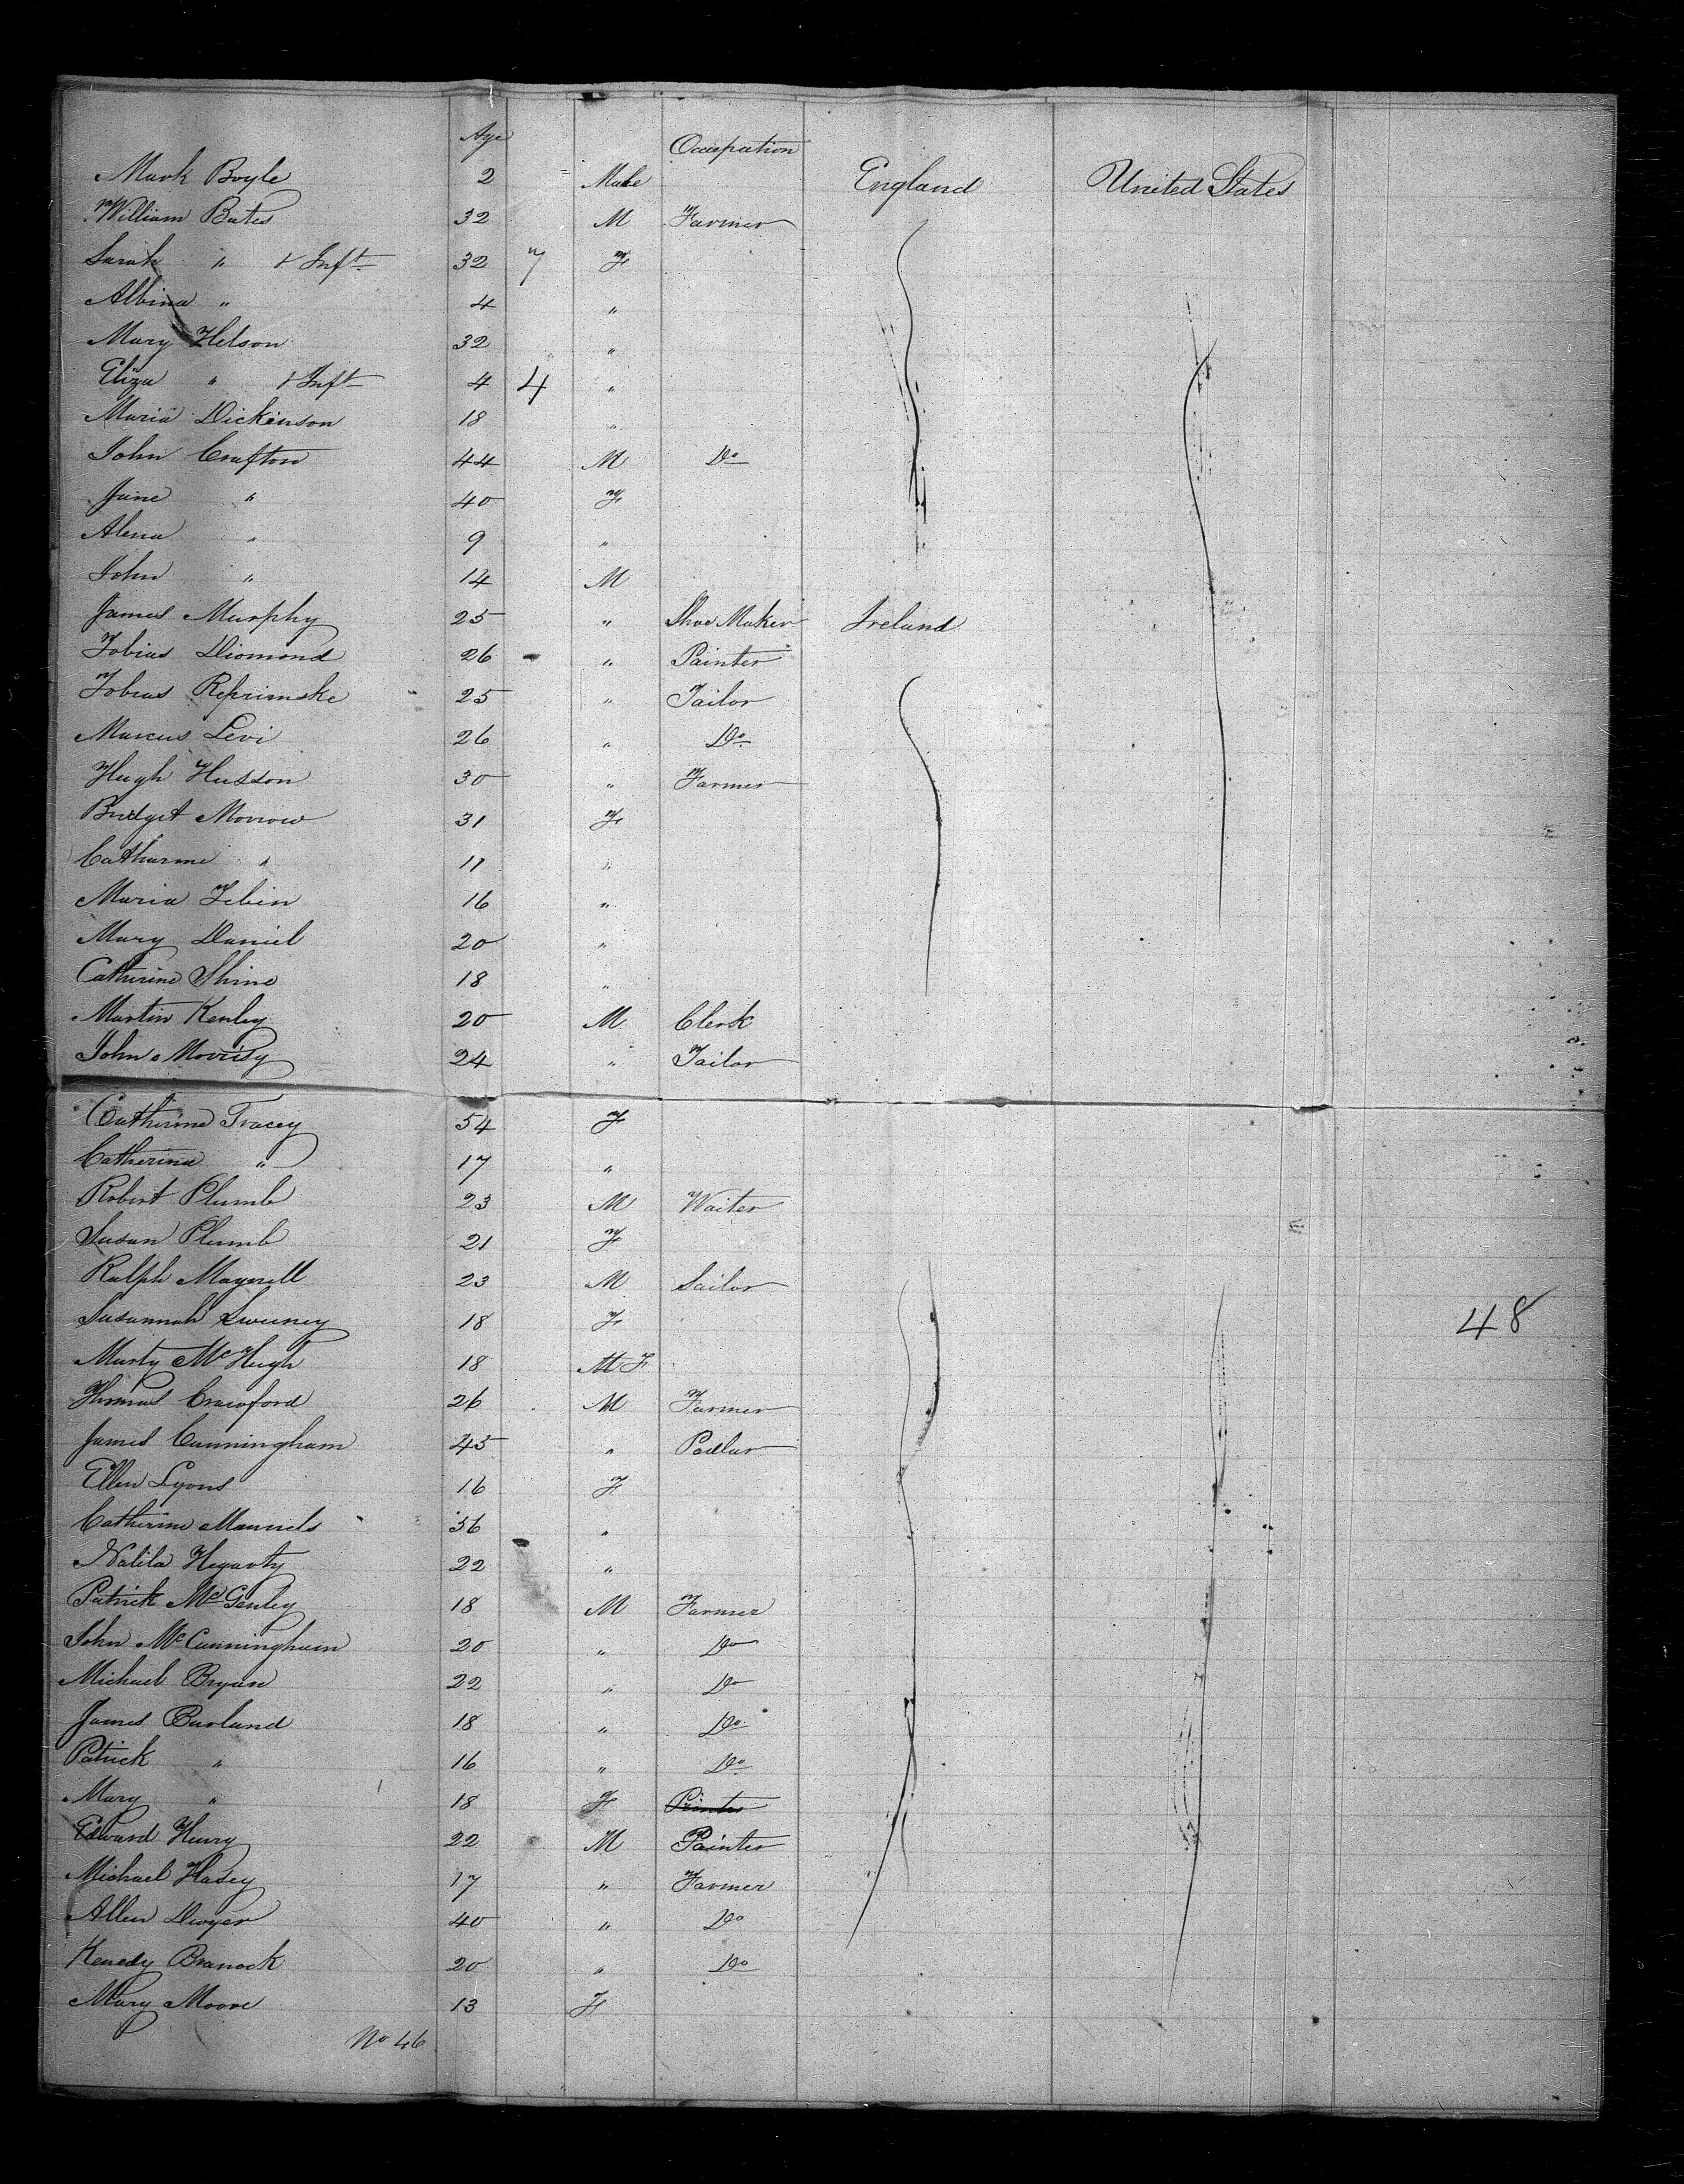 Age Occupation
Mark Boyle 2 Male England United States
William Bates 32 M Farmer
Sarah " & Inft 32 7 F
Albina " 4 "
Mary Helson 32 "
Eliza " & Inft 4 4 "
Maria Dickinson 18 "
John Crafton 44 M Do
Jane " 40 F
Alena " 9 "
John " 14 M
James Murphy 25 " Shoe Maker Ireland
Tobias Diomond 26 " Painter
Tobias Reprimske 25 " Tailor
Marcus Levi 26 " Do
Hugh Husson 30 " Farmer
Bridget Morrow 31 F
Catharine " 11 "
Maria Tebin 16 "
Mary Daniel 20 "
Catherine Shine 18 "
Martin Kenley 20 M Clerk
John Morrisy 24 " Tailor
Catherine Tracey 54 F
Catherine " 17 "
Robert Plumb 23 M Waiter
Susan Plumb 21 F
Ralph Maynell 23 M Sailor
Susannah Sweeney 18 F 48
Murty McHugh 18 M F
Thomas Crawford 26 M Farmer
James Cunningham 45 " Pedlar
Ellen Lyons 16 F
Catherine Mannels 36 "
Nalila Hegarty 22 "
Patrick McGenley 18 M Farmer
John McCunningham 20 " Do
Michael Bryan 22 " Do
James Burland 18 " Do
Patrick " 16 " Do
Mary " 18 F Printer
Edward Henry 22 M Painter
Michael Hasey 17 " Farmer
Allen Dwyer 40 " Do
Kenedy Branock 20 " Do
Mary Moore 13 F
No 46